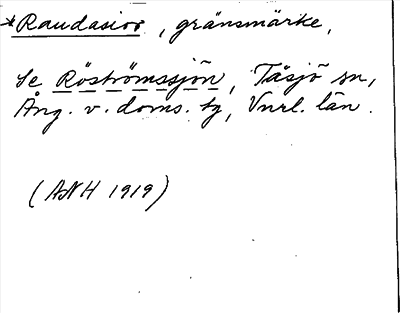 *Raudasior, gränsmärke,
Se Röströmssjön, Tåsjö sn,
Ång. v. doms. tg, Vnrl. län.
(ANH 1919)